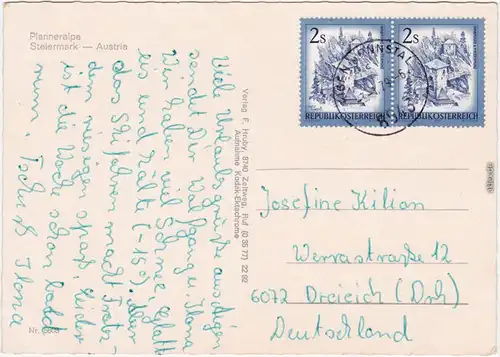 Planneralpe
Steiermark — Austria
Viele Urlaubsgrüße aus Aigen
sendet Dir Wolfgang u. Ilona
Wir haben viel Schnee, Glatt-
eis und Kälte (-15°). Aber
das Skifahren macht trotz-
dem riesigen Spaß. Leider
ist die Woche schon bald
rum. Tschüß Ilona
Nr.
Verlag F. Hruby, 8740 Zeltweg, Ruf (0 35 77) 22 92
Aufnahme Kodak-Ektachrome
2s
REPUBLIK ÖSTERREICH
2s
REPUBLIK ÖSTERREICH
AIGEN ENNSTAL
Josefine Kilian
Werrastraße 12
6072 Dreieich (Drh)
Deutschland